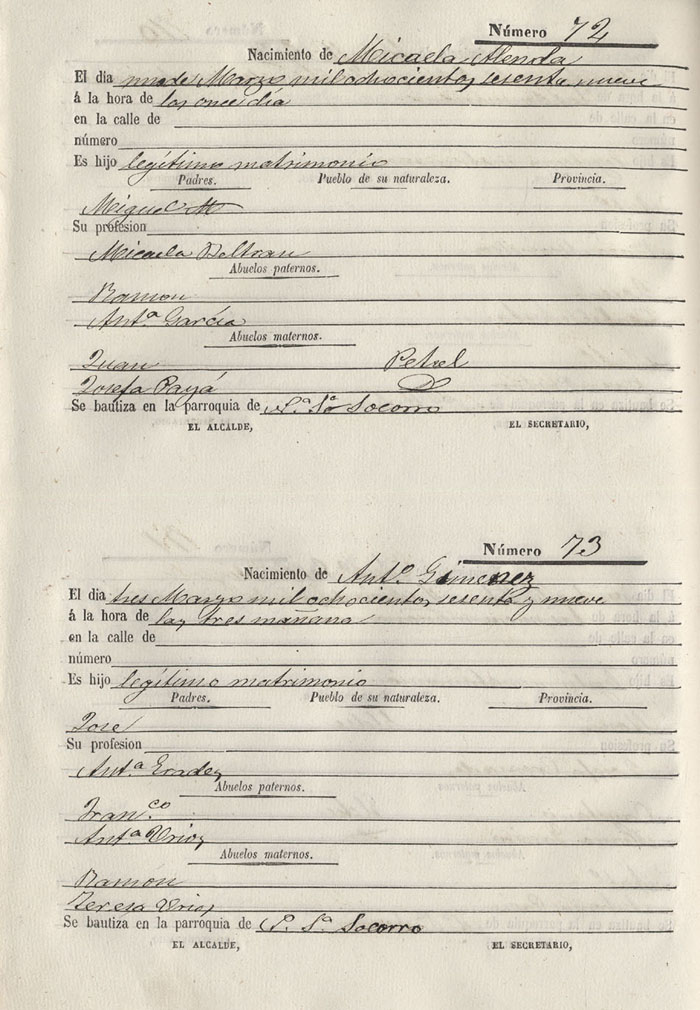 Número 72
Nacimiento de Micaela Alenda
El dia uno de Marzo mil ochocientos sesenta nueve
á la hora de las once dia
en la calle de
número
Es hijo legítimo matrimonio
Padres. Pueblo de su naturaleza. Provincia.
Miguel
Su profesion
Micaela Beltran
Abuelos paternos.
Ramon
Antª Garcia
Abuelos maternos.
Juan Petrel
Josefa Payá
Se bautiza en la parroquia de Socorro
EL ALCALDE, EL SECRETARIO,
Número 73
Nacimiento de Antº Gimenez
El dia tres Marzo mil ochocientos sesenta y nueve
á la hora de las tres mañana
en la calle de
número
Es hijo legítimo matrimonio
Padres. Pueblo de su naturaleza. Provincia.
Jose
Su profesion
Antª Erades
Abuelos paternos.
Franco
Antª Urios
Abuelos maternos.
Ramón
Teresa Urios
Se bautiza en la parroquia de P. Sª Socorro
EL ALCALDE, EL SECRETARIO,